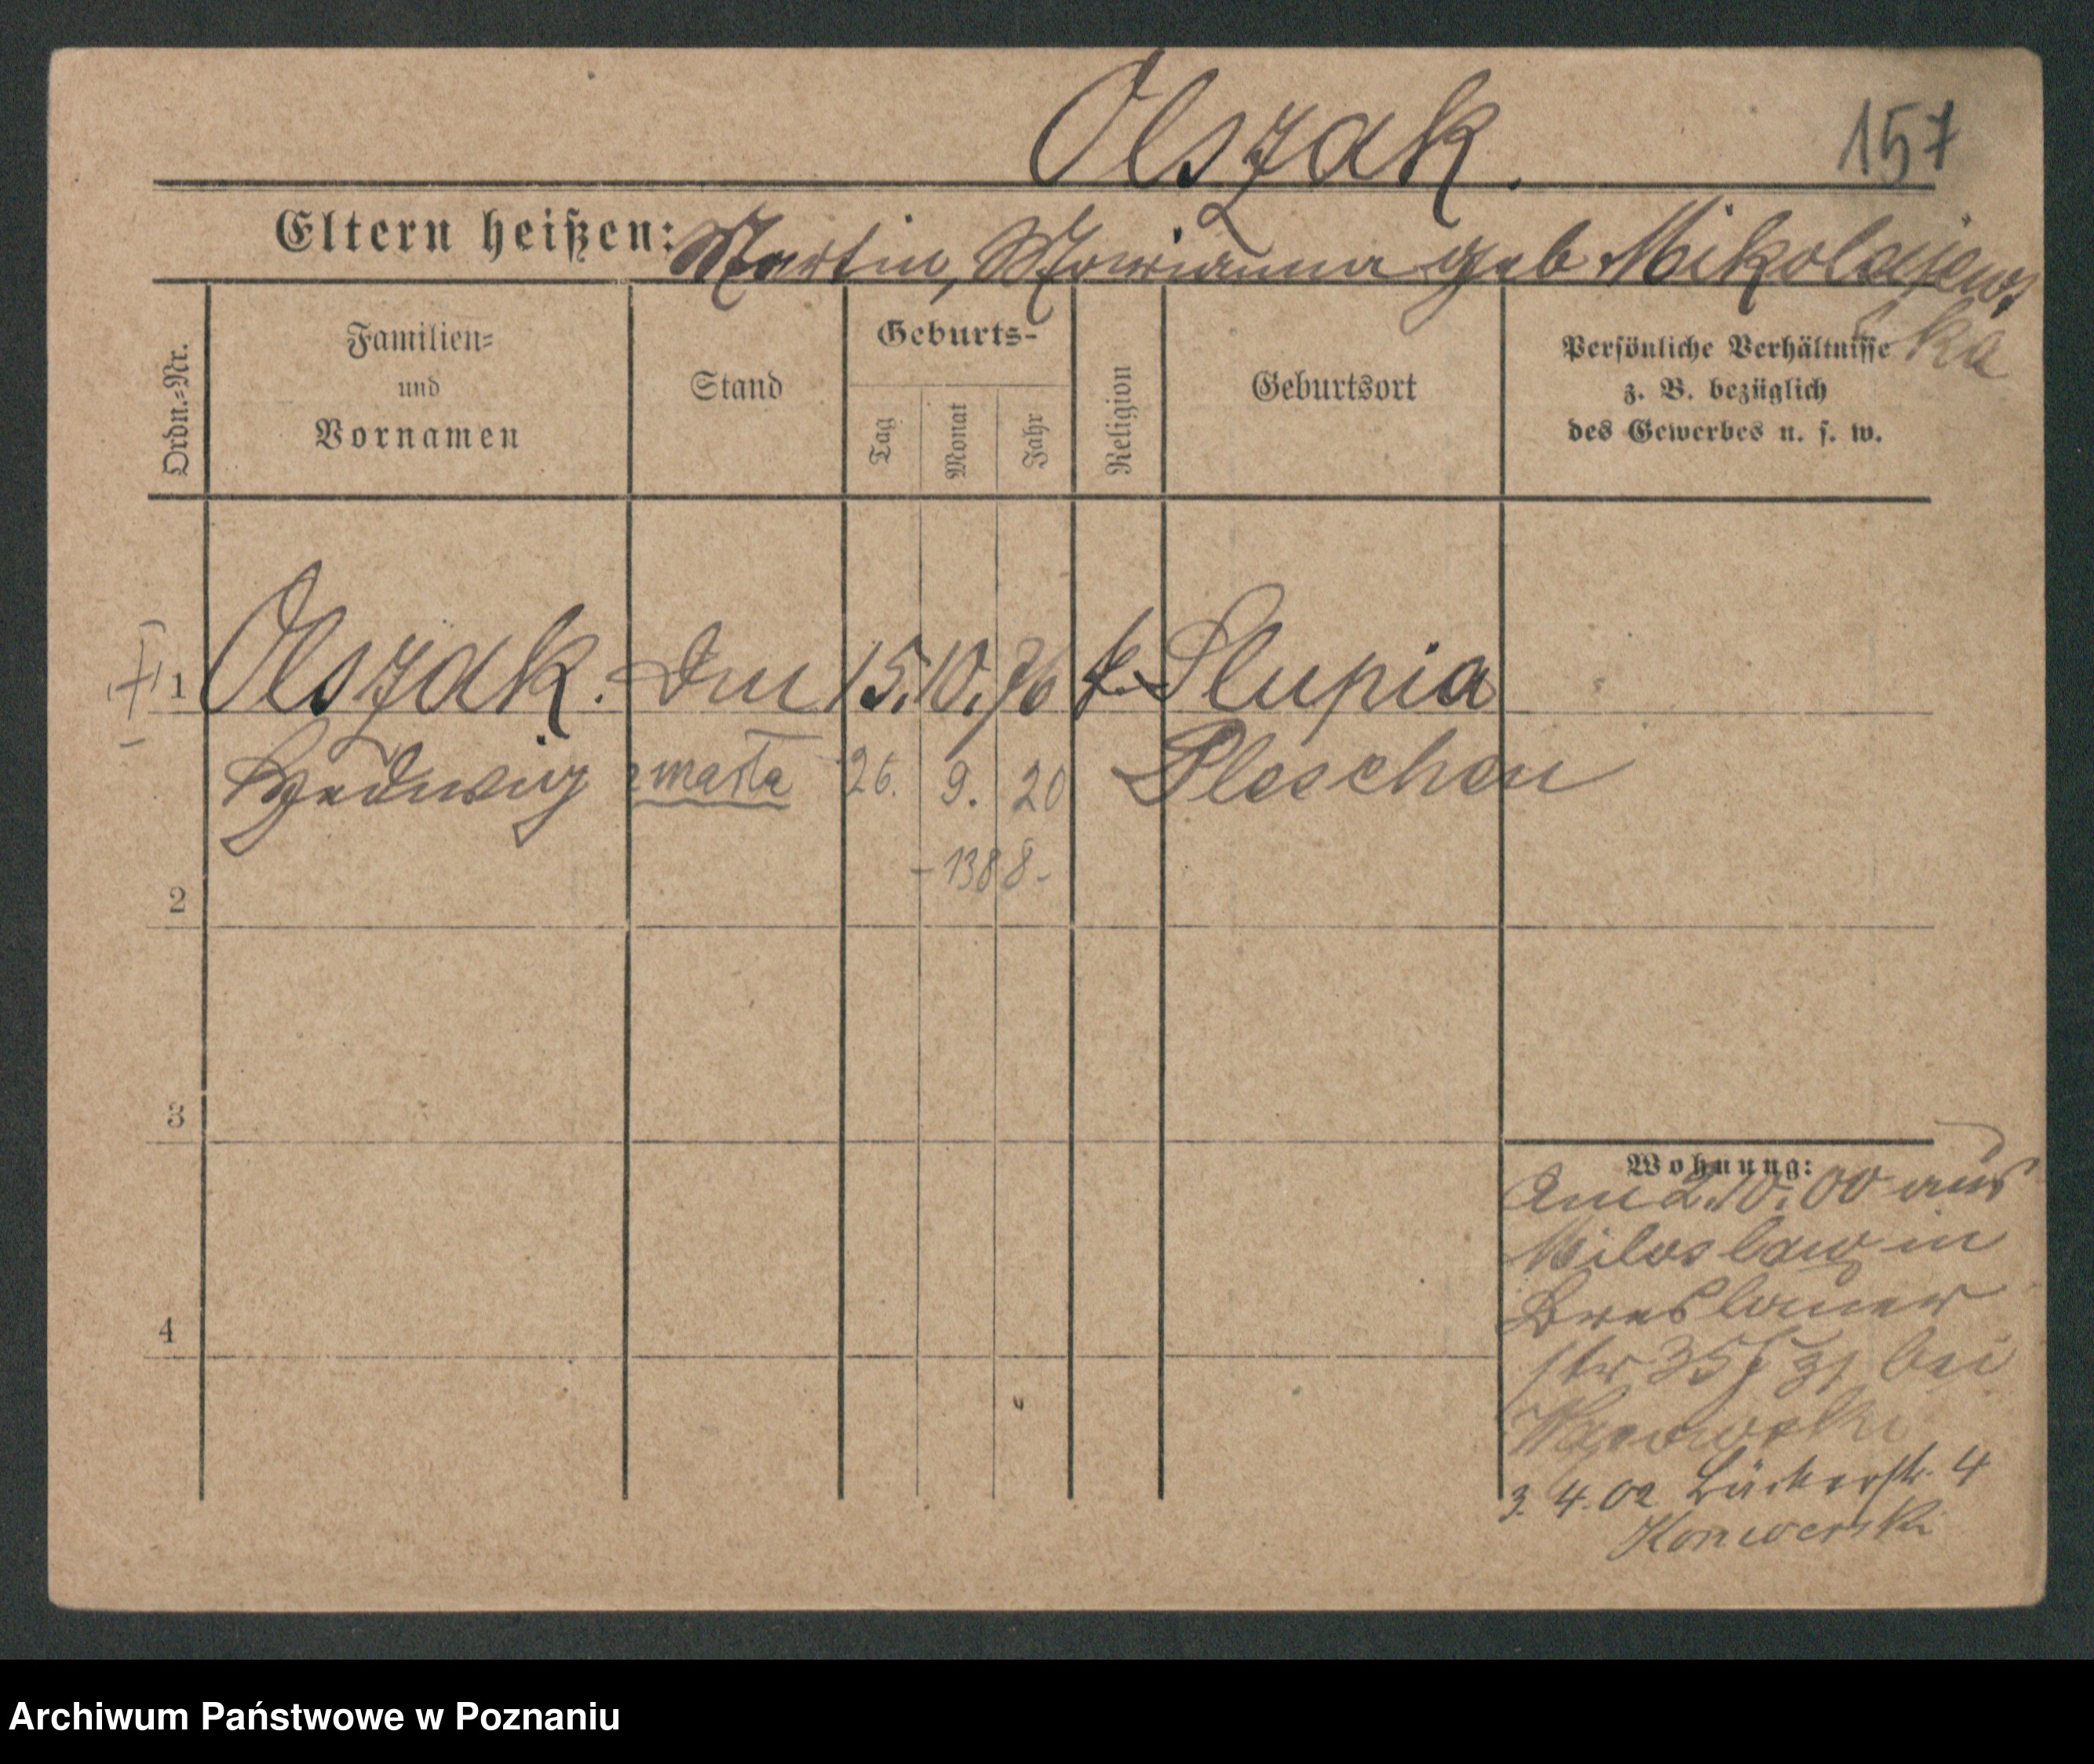 Olszak.
157
Eltern heißen: Martin, Marianna geb Mikolajews
ka
Ordn.=Nr.
Familien=
und
Vornamen
Stand
Geburts-
Tag
Monat
Jahr
Religion
Geburtsort
Persönliche Verhältnisse
z. B. bezüglich
des Gewerbes u. s. w.
1 Olszak. 15. 10. 76 k. Slupia
Hedwig zmarła 26. 9. 20 Pleschen
-1388-
2
3
4
Wohnung:
Am 2.10.00 aus
Miloslaw in
Breslauer
str 35 bei
3. 4. 02 Bäckerstr. 4
Konwerski
Archiwum Państwowe w Poznaniu